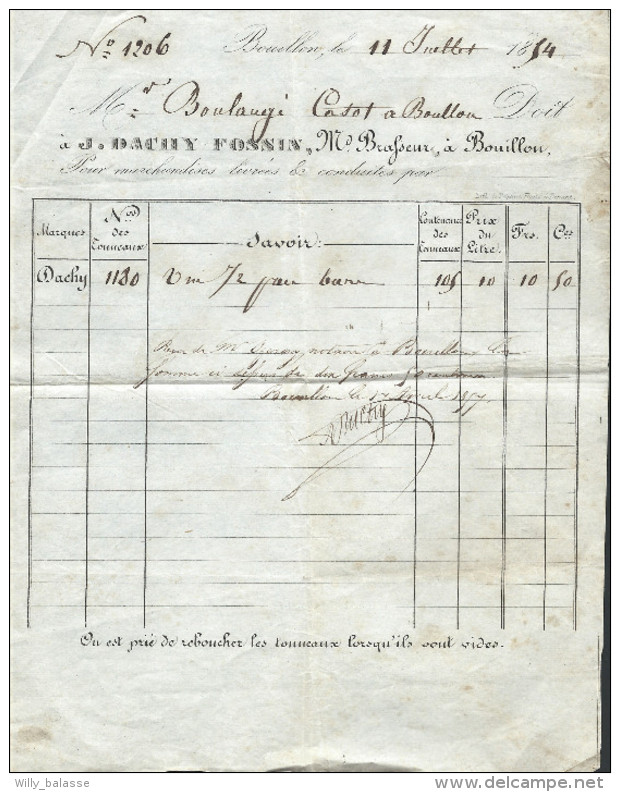 No 1206 Bouillon, le 11 Juillet 1854
Mr Boulangé Casot a Boullon Doit
à J. DACHY FOSSIN, Md. Brasseur, à Bouillon,
Pour marchandises livrées & conduites par
Marques Nos des Tonneaux Savoir: Contenance des Tonneaux Prix du Litre. Frs. Ces
Dachy 1180 Un 1/2 105 10 10 50
de Mr notaire à Bouillon la
somme ci de dix francs
Bouillon le 17 1857
On est prié de reboucher les tonneaux lorsqu'ils sont vides.
Willy_balasse
delcampe.net